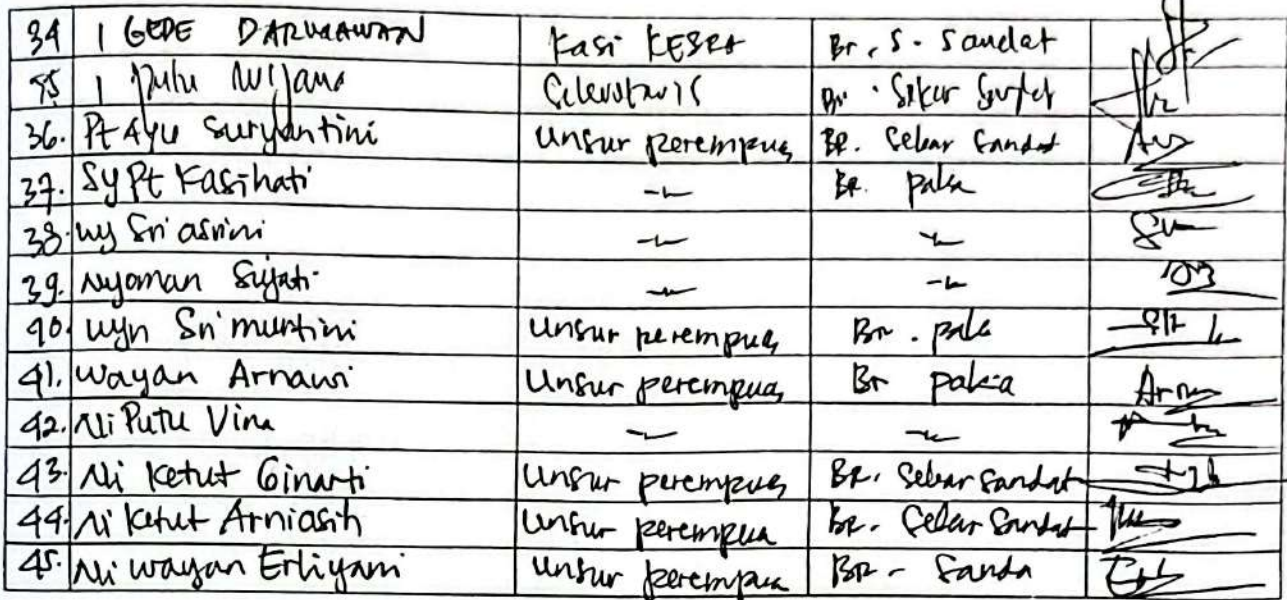 34 I GEDE DARMAWAN Kasi KESRA Br. S. Sandat
35 I Putu Wijana Br. Sekar Sandat
36. Pt Ayu Suryantini Unsur perempuan BR. Sekar Sandat
37. Sy Pt Kasihati -"- BR. paka
38. Wy Sri asrini -"- -"-
39. Nyoman Sujati -"- -"-
40. Wyn Sri murtini Unsur perempuan Br. paka
41. Wayan Arnawi Unsur perempuan Br paka
42. Ni Putu Vina -"- -"-
43. Ni Ketut Ginarti Unsur perempuan BR. Sekar Sandat
44. Ni Ketut Arniasih Unsur perempua BR. Sekar Sandat
45. Ni Wayan Erliyani Unsur perempua BR - Sanda